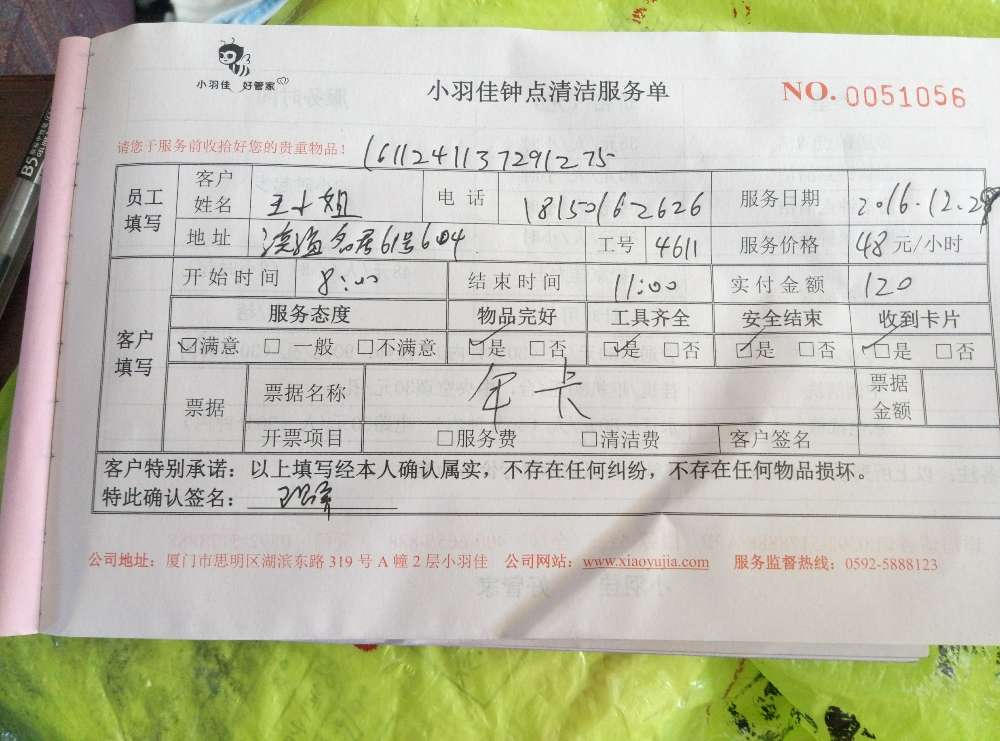 小羽佳 好管家
小羽佳钟点清洁服务单
NO. 0051056
请您于服务前收拾好您的贵重物品！
1611241137291275
员工填写 客户姓名 王小姐 电话 18150162626 服务日期 2016.12.29
地址 滨海名居61号604 工号 4611 服务价格 48元/小时
客户填写 开始时间 8:00 结束时间 11:00 实付金额 120
服务态度 物品完好 工具齐全 安全结束 收到卡片
☑满意 □ 一般 □不满意 ☑是 □否 ☑是 □否 ☑是 □否 ☑是 □否
票据 票据名称 年卡 票据金额
开票项目 □服务费 □清洁费 客户签名
客户特别承诺：以上填写经本人确认属实，不存在任何纠纷，不存在任何物品损坏。
特此确认签名：
公司地址：厦门市思明区湖滨东路 319 号 A 幢 2 层小羽佳 公司网站：www.xiaoyujia.com 服务监督热线：0592-5888123
B5